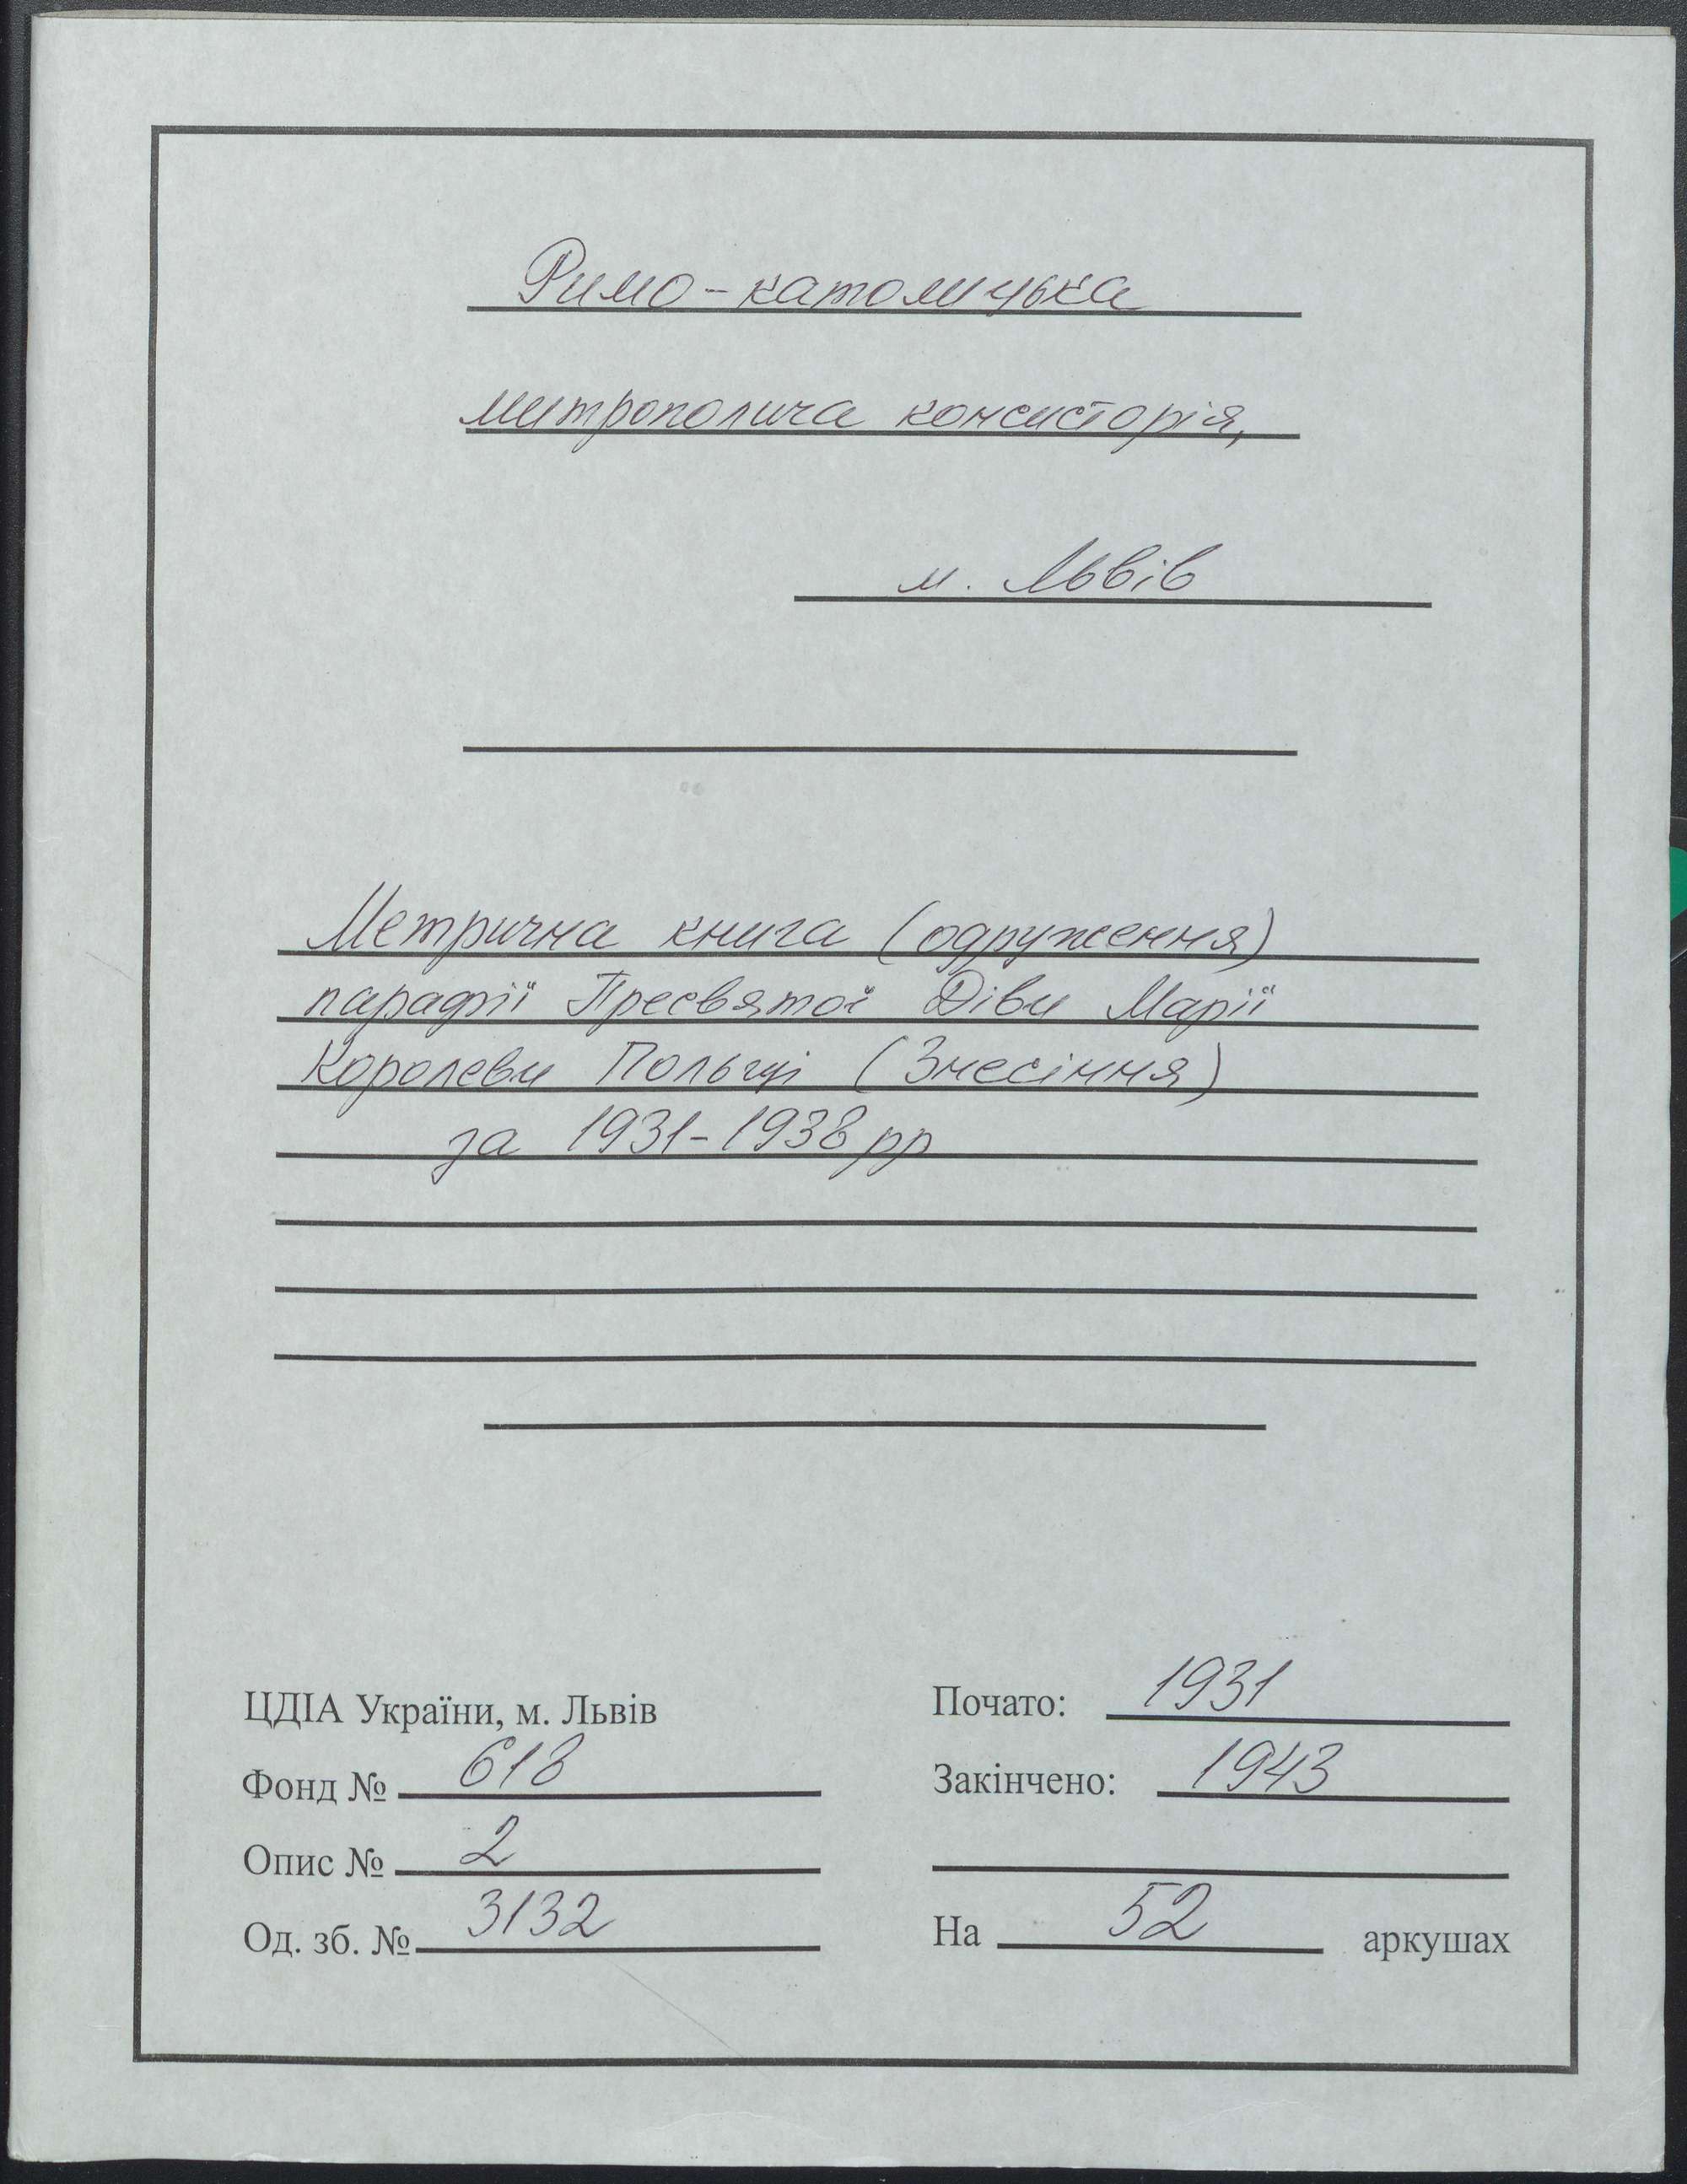 Римо-католицька
митрополича консисторія,
м. Львів
Метрична книга (одруження)
парафії Пресвятої Діви Марії
Королеви Польщі (Знесіння)
за 1931-1938 рр
ЦДІА України, м. Львів
Фонд № 618
Опис № 2
Од. зб. № 3132
Почато: 1931
Закінчено: 1943
На 52 аркушах